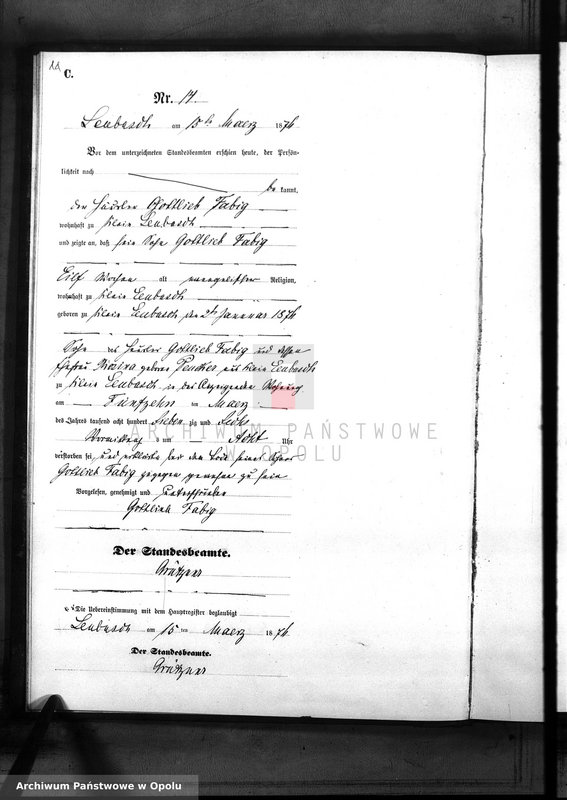 C.
Nr. 14.
Leubusch am 15ten Maerz 1876
Vor dem unterzeichneten Standesbeamten erschien heute, der Persön-
lichkeit nach
be kannt,
der Häusler Gottlieb Fabig
wohnhaft zu Klein Leubusch
und zeigte an, daß sein Sohn Gottlieb Fabig
Eilf Wochen alt evangelischer Religion,
wohnhaft zu Klein Leubusch
geboren zu Klein Leubusch den Januar 1876
Sohn des Häusler Gottlieb Fabig und dessen
Ehefrau Rosina geborne aus Klein Leubusch
zu Klein Leubusch in des Anzeigenden Wohnung
am Fünfzehn ten Maerz
des Jahres tausend acht hundert Sieben zig und Sechs
Vormittag s um Acht Uhr
verstorben sei, und erklärte bei dem Tode seines Sohnes
Gottlieb Fabig zugegen gewesen zu sein
Vorgelesen, genehmigt und unterschrieben
Gottlieb Fabig
Der Standesbeamte.
Grützner
Die Uebereinstimmung mit dem Hauptregister beglaubigt
Leubusch am 15 ten Maerz 1876
Der Standesbeamte.
Grützner
ARCHIWUM PAŃSTWOWE
W OPOLU
Archiwum Państwowe w Opolu